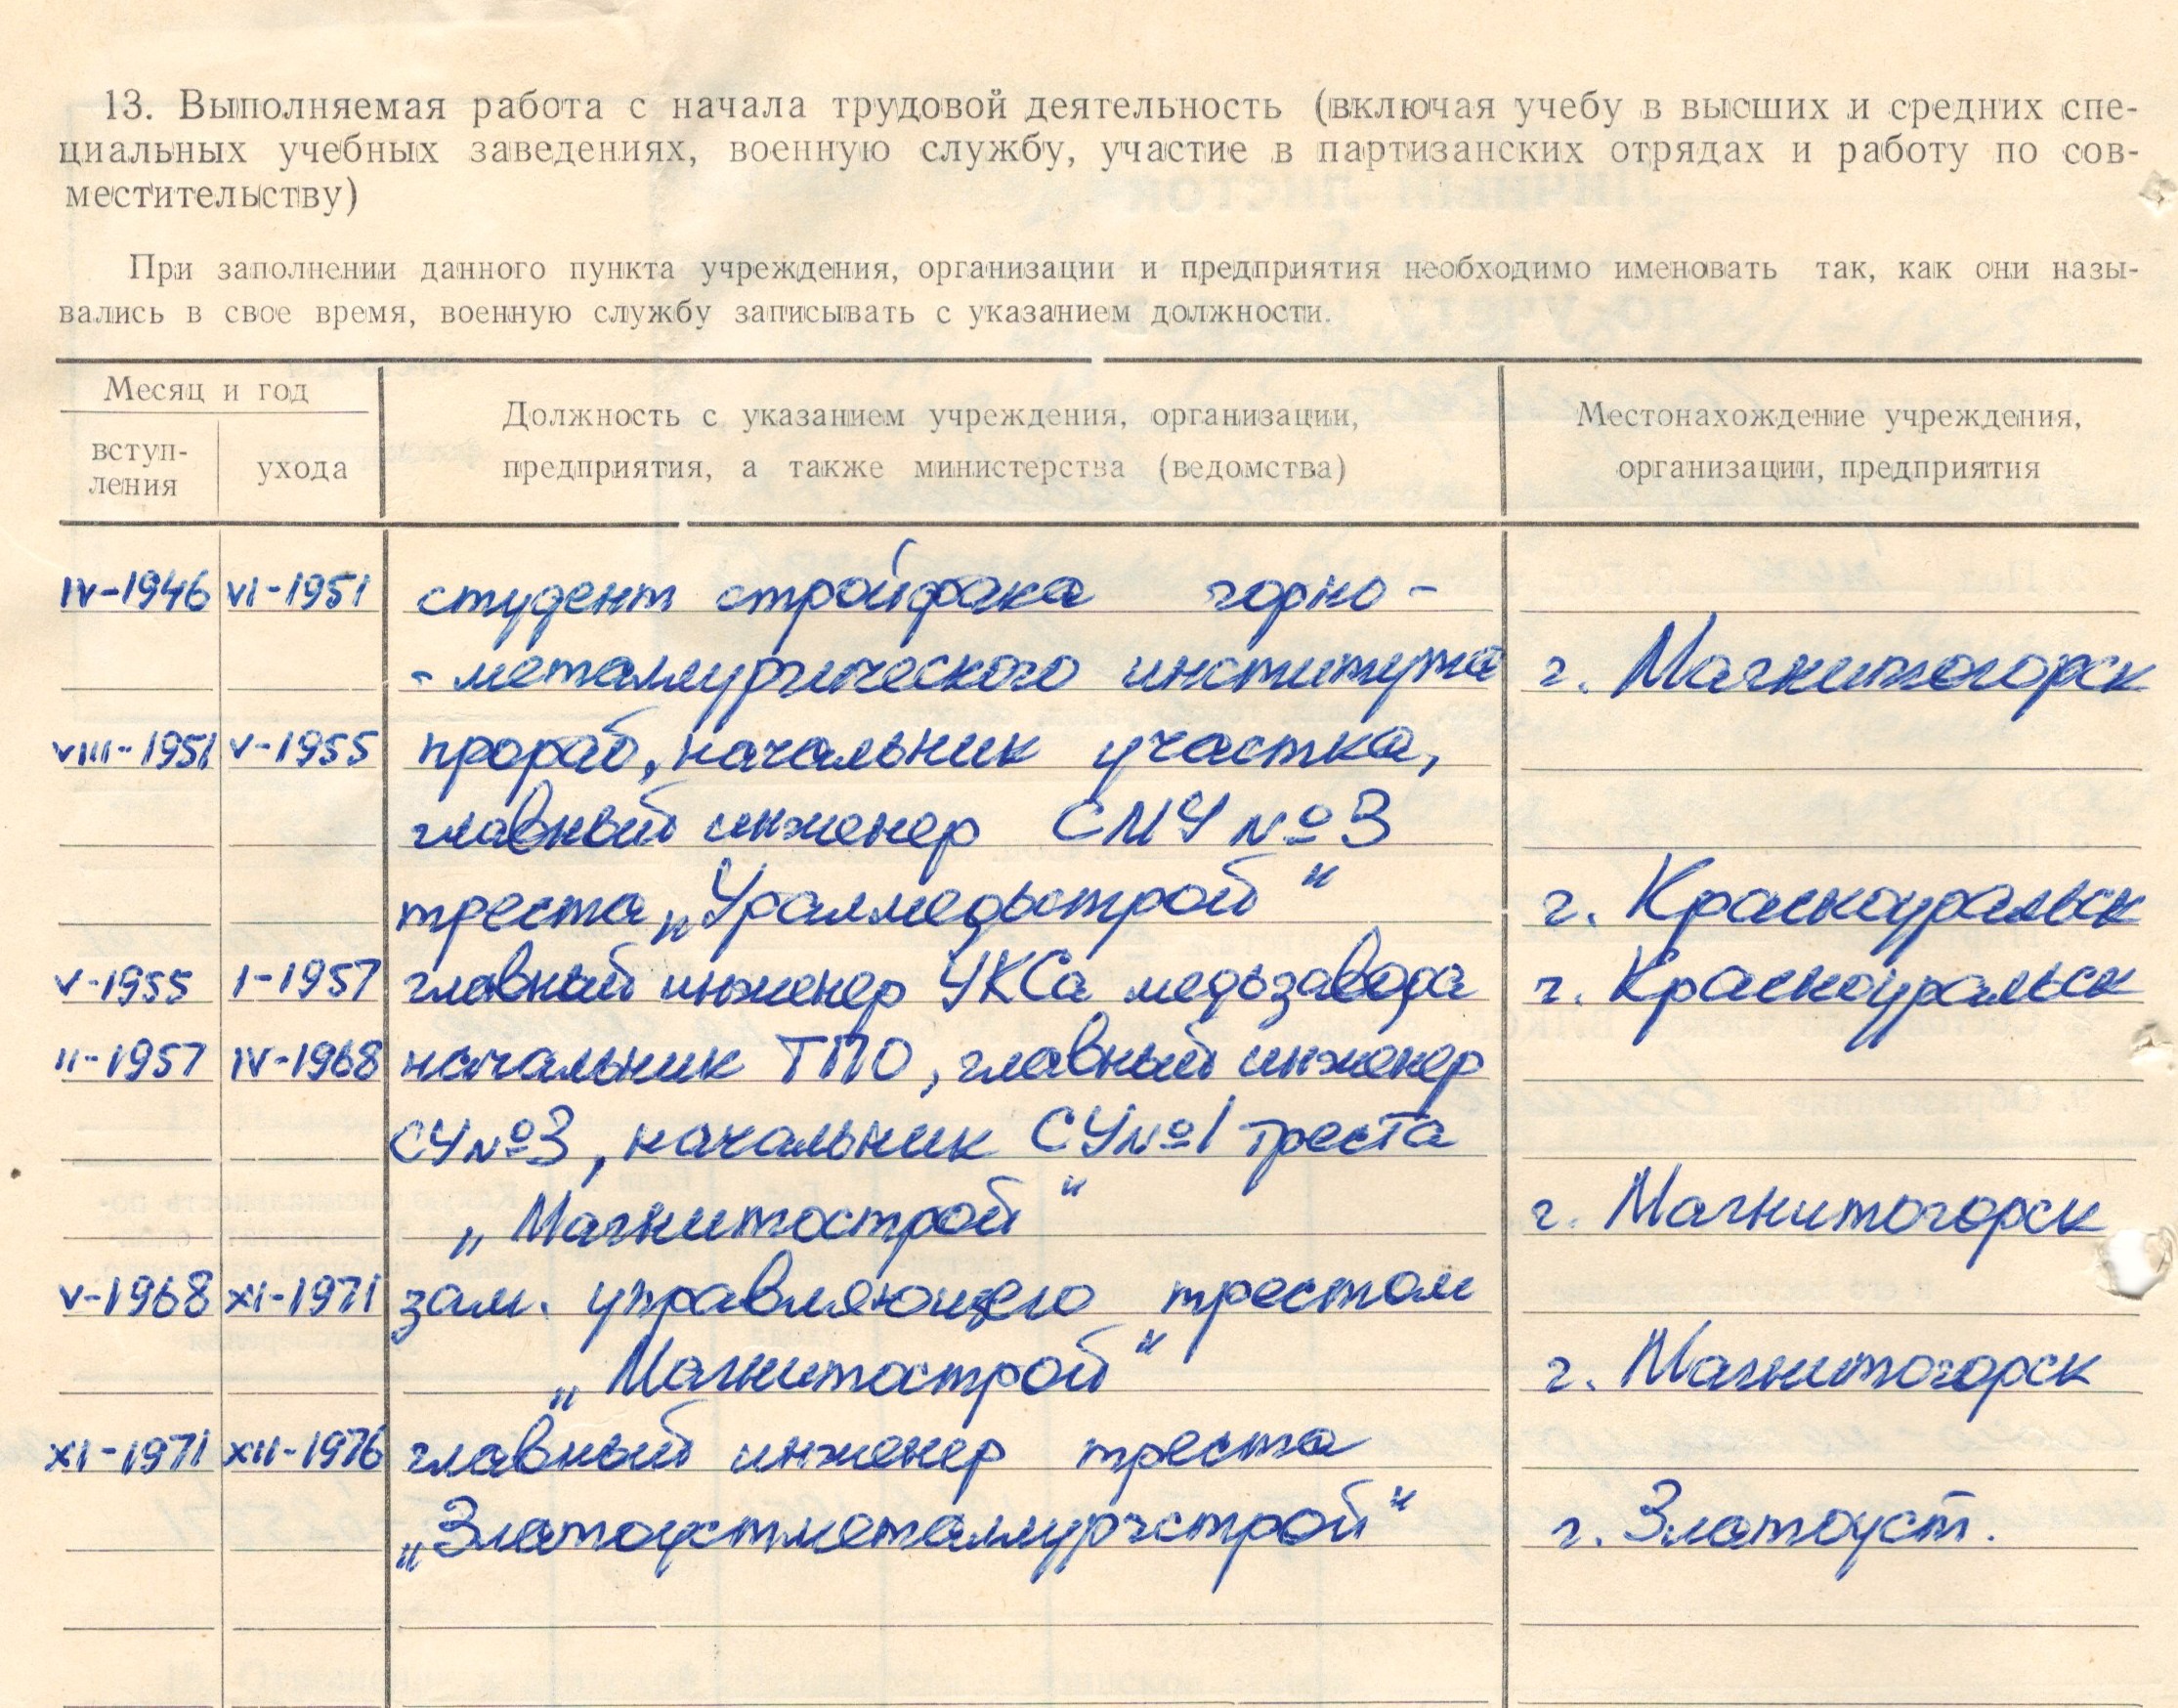 13. Выполняемая работа с начала трудовой деятельность (включая учебу в высших и средних спе-
циальных учебных заведениях, военную службу, участие в партизанских отрядах и работу по сов-
местительству)
При заполнении данного пункта учреждения, организации и предприятия необходимо именовать так, как они назы-
вались в свое время, военную службу записывать с указанием должности.
Месяц и год
вступ-
ления
ухода
Должность с указанием учреждения, организации,
предприятия, а также министерства (ведомства)
Местонахождение учреждения,
организации, предприятия
IV-1946 VI-1951 студент стройфака горно-
-металлургического института г. Магнитогорск
VIII-1951 V-1955 прораб, начальник участка,
главный инженер СМУ №3
треста „Уралмедьстрой“ г. Красноуральск
V-1955 I-1957 главный инженер УКСа медьзавода г. Красноуральск
II-1957 IV-1968 начальник ТПО, главный инженер
СУ №3, начальник СУ №1 треста
„Магнитострой“ г. Магнитогорск
V-1968 XI-1971 зам. управляющего трестом
„Магнитострой“ г. Магнитогорск
XI-1971 XII-1976 главный инженер треста
„Златоустметаллургстрой“ г. Златоуст.